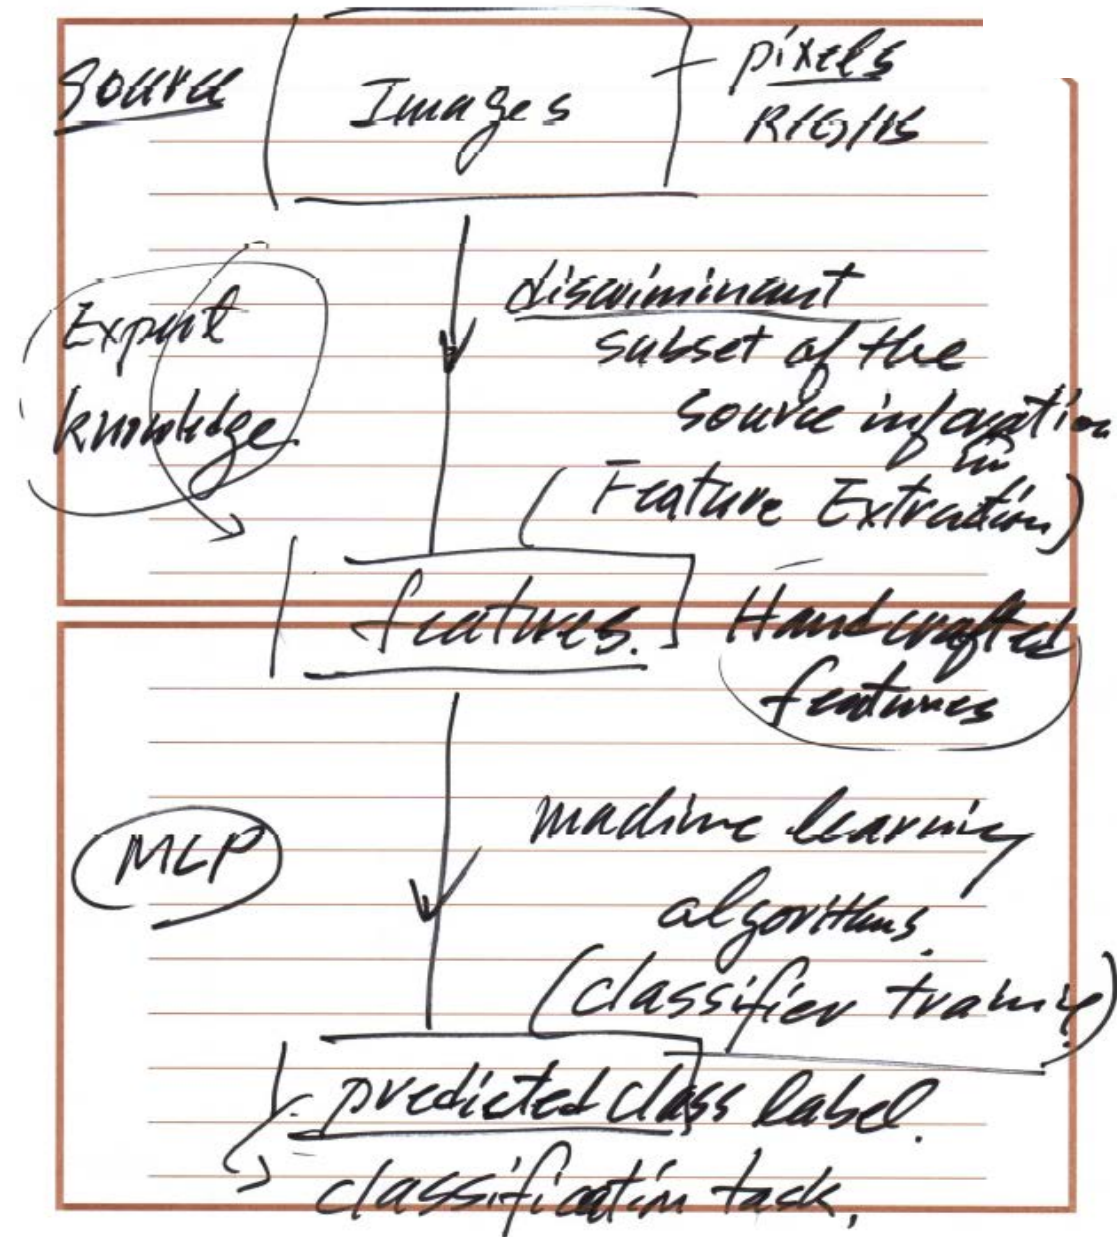 Source
Images
pixels
R/G/B
Expert
knowledge
discriminant
subset of the
source inforation
m
(Feature Extraction)
features.
Handcrafted
features
MLP
machine learning
algorithms.
(classifier training)
predicted class label.
classification task.